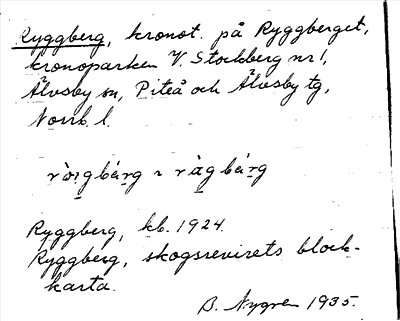 Ryggberg, kronot. på Ryggberget,
kronoparken V. Stockberg nr 1,
Älvsby sn, Piteå och Älvsby tg,
Norrb. l.
Ryggberg, kb. 1924.
Ryggberg, skogsrevirets block-
karta.
B. Nygren 1935.